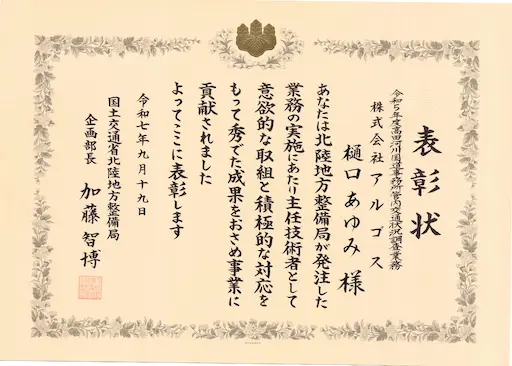 表彰状
令和5年度高田河川国道事務所管内交通状況調査業務
株式会社アルゴス
樋口あゆみ様
あなたは北陸地方整備局が発注した
業務の実施にあたり主任技術者として
意欲的な取組と積極的な対応を
もって秀でた成果をおさめ事業に
貢献されました
よってここに表彰します
令和七年九月十九日
国土交通省北陸地方整備局
企画部長 加藤智博